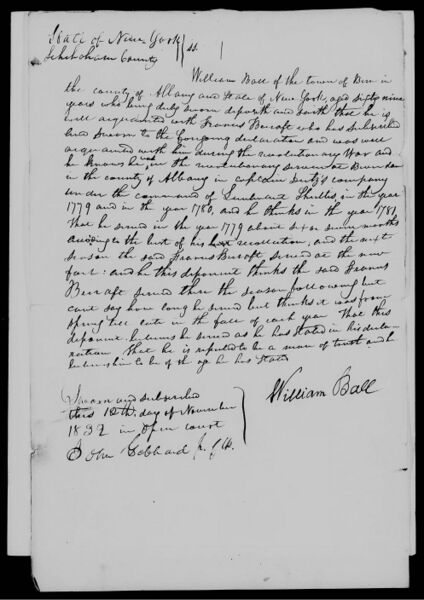 State of New York
Schoharie County } ss
William Ball of the town of Bern in
the county of Albany and State of New York, aged sixty nine
years who being duly sworn deposeth and saith that he is
well acquainted with Francis Becraft who has subscribed
and sworn to the foregoing declaration and was well
acquainted with him during the revolutionary War and
he knows he was in the revolutionary service at
in the county of Albany in captain company
under the command of Lieutenant in the year
1779 and in the year 1780, and he thinks in the year 1781
That he served in the year 1779 about six or seven months
according to the best of his recollection, and the next
season the said Francis Becraft served at the new
fort: and he this deponent thinks the said Francis
Becraft served there the season following but
cant say how long he served but thinks it was from
spring till late in the face of each year That this
deponent believes he served as he has stated in his decla-
ration That he is reputed to be a man of truth and he
believes him to be of the age he has stated
Sworn and subscribed
this 12th day of November
1832 in open court
John Gebhard Jr. Clk.
William Ball